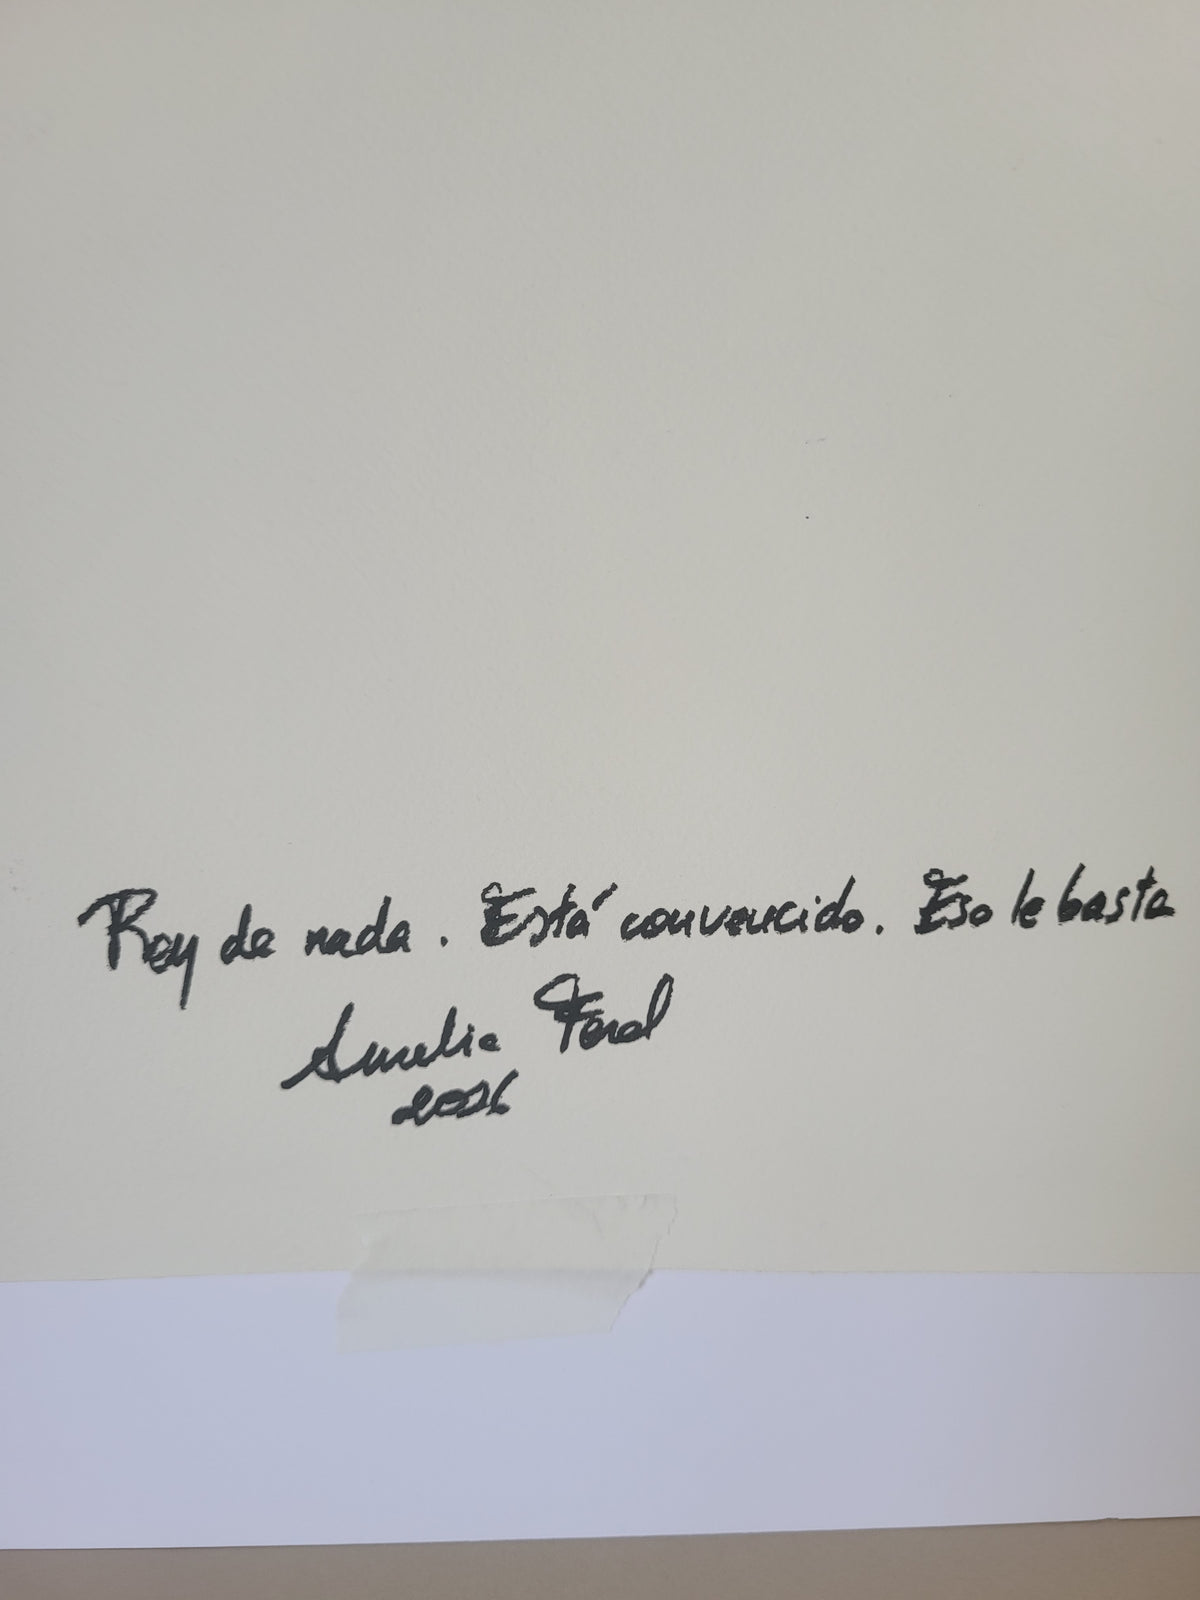 Rey de nada. Está convencido. Eso le basta
Amelia Feral
2026